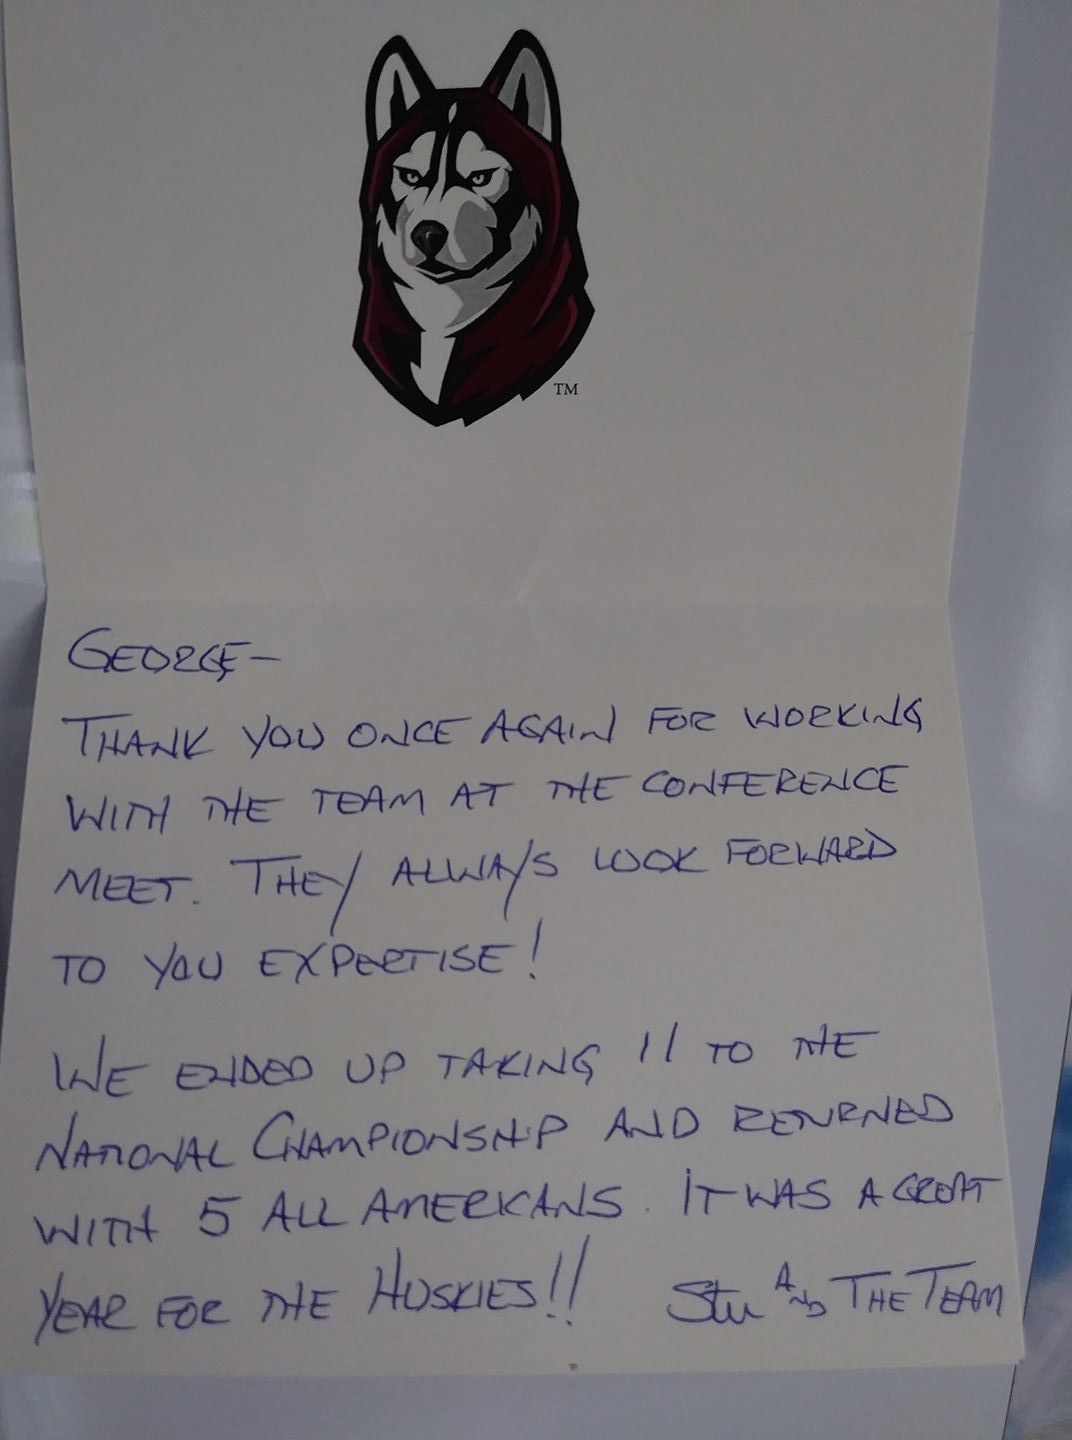 TM
GEORGE-
THANK YOU ONCE AGAIN FOR WORKING
WITH THE TEAM AT THE CONFERENCE
MEET. THEY ALWAYS LOOK FORWARD
TO YOU EXPERTISE!
WE ENDED UP TAKING 11 TO THE
NATIONAL CHAMPIONSHIP AND RETURNED
WITH 5 ALL AMERICANS. IT WAS A GREAT
YEAR FOR THE HUSKIES!! Stu AND THE TEAM